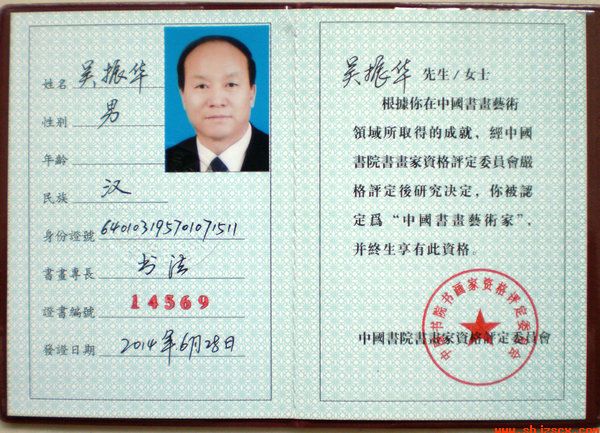 姓名 吴振华
性别 男
年齡
民族 汉
身份證號 640103195701071511
書畫專長 书法
證書編號 14569
發證日期 2014年6月28日
吴振华 先生/女士
根據你在中國書畫藝術
領域所取得的成就，經中國
書院書畫家資格評定委員會嚴
格評定後研究決定，你被認
定爲“中國書畫藝術家”，
并終生享有此資格。
中国书院书画家资格评定委员会
中國書院書畫家資格評定委員會